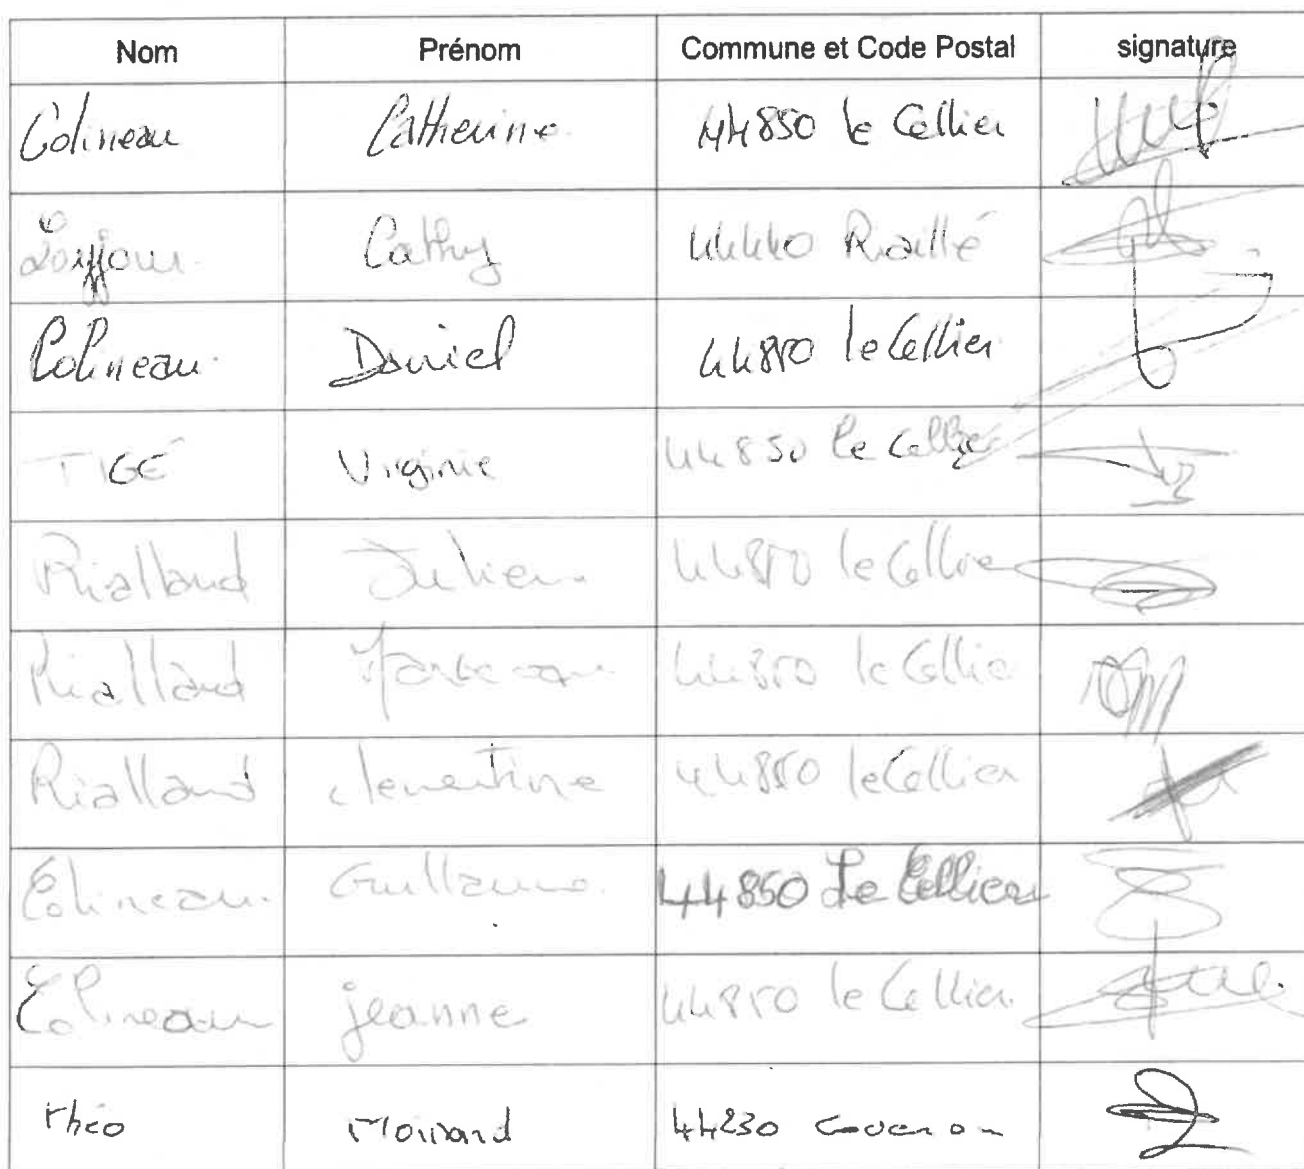 Nom Prénom Commune et Code Postal signature
Colineau Catherine 44850 le Cellier
Cathy 44440 Riaillé
Colineau Daniel 44850 le Cellier
TIGÉ Virginie 44850 le Cellier
Rialland Julien 44850 le Cellier
Rialland 44850 le Cellier
Rialland clementine 44850 le Cellier
Colineau Guillaume 44850 Le Cellier
Colineau jeanne 44850 le Cellier
théo 44230 Coueron